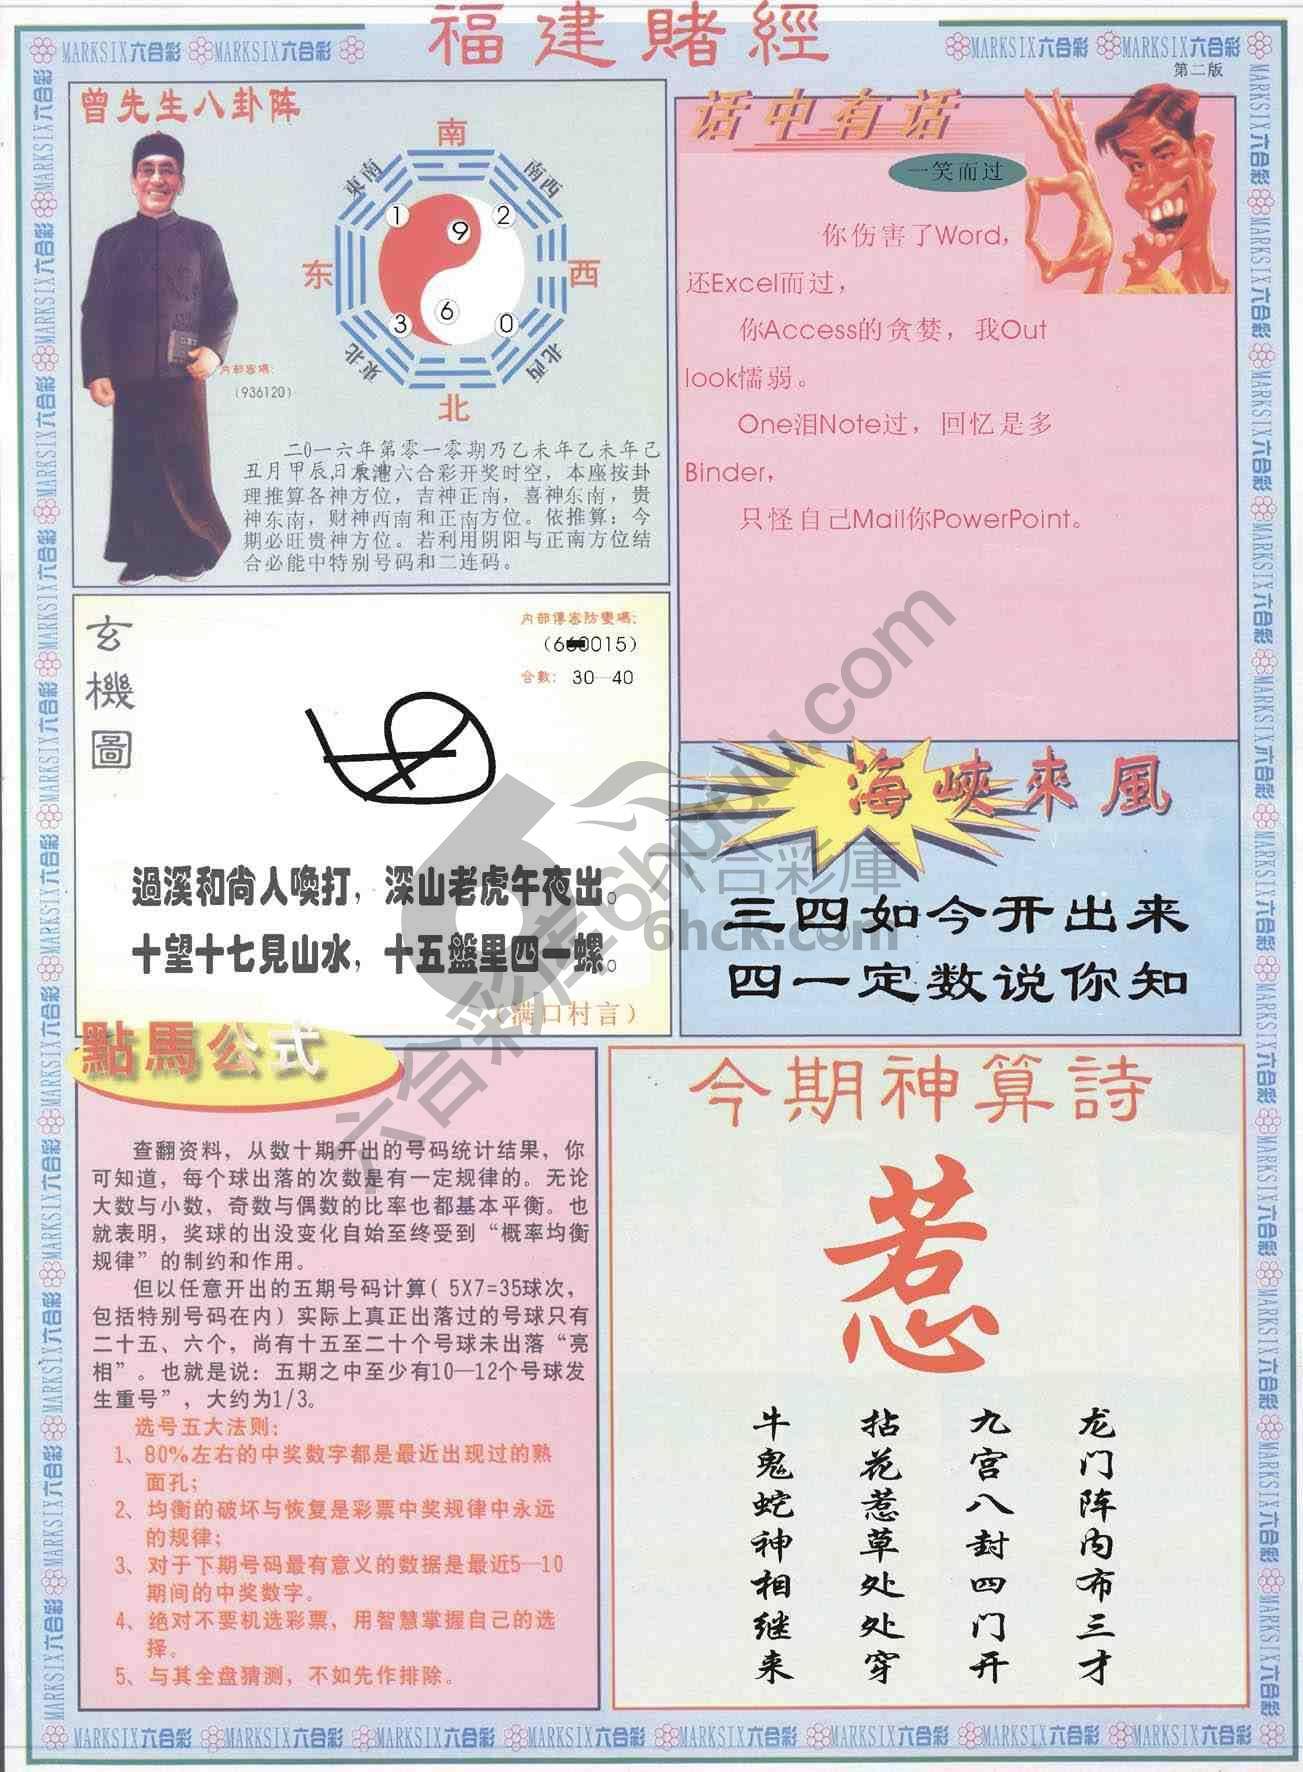 福建賭經
MARKSIX六合彩 MARKSIX六合彩 MARKSIX六合彩 MARKSIX六合彩
第二版
曾先生八卦阵
南
東南
南西
1
9
2
东
西
3
6
0
東北
北西
北
内部密碼:
(936120)
二0一六年第零一零期乃乙未年乙未年己
丑月甲辰日
六合彩开奖时空，本座按卦
理推算各神方位，吉神正南，喜神东南，贵
神东南，财神西南和正南方位。依推算：今
期必旺贵神方位。若利用阴阳与正南方位结
合必能中特别号码和二连码。
话中有话
一笑而过
你伤害了Word，
还Excel而过，
你Access的贪婪，我Out
look懦弱。
One泪Note过，回忆是多
Binder，
只怪自己Mail你PowerPoint。
玄機圖
内部傳密防變碼:
0015)
合數: 30—40
過溪和尚人喚打，深山老虎午夜出。
十望十七見山水，十五盤里四一螺。
（满口村言）
海峽來風
三四如今开出来
四一定数说你知
點馬公式
查翻资料，从数十期开出的号码统计结果，你
可知道，每个球出落的次数是有一定规律的。无论
大数与小数，奇数与偶数的比率也都基本平衡。也
就表明，奖球的出没变化自始至终受到“概率均衡
规律”的制约和作用。
但以任意开出的五期号码计算( 5X7=35球次，
包括特别号码在内) 实际上真正出落过的号球只有
二十五、六个，尚有十五至二十个号球未出落“亮
相”。也就是说：五期之中至少有10—12个号球发
生重号”，大约为1/3。
选号五大法则:
1、80%左右的中奖数字都是最近出现过的熟
面孔;
2、均衡的破坏与恢复是彩票中奖规律中永远
的规律;
3、对于下期号码最有意义的数据是最近5—10
期间的中奖数字。
4、绝对不要机选彩票，用智慧掌握自己的选
择。
5、与其全盘猜测，不如先作排除。
今期神算詩
惹
龙门阵内布三才
九宫八封四门开
拈花惹草处处穿
牛鬼蛇神相继来
六合彩库6htuku.com
六合彩庫
6hck.com
MARKSIX六合彩 MARKSIX六合彩 MARKSIX六合彩 MARKSIX六合彩 MARKSIX六合彩 MARKSIX六合彩 MARKSIX六合彩 MARKSIX六合彩